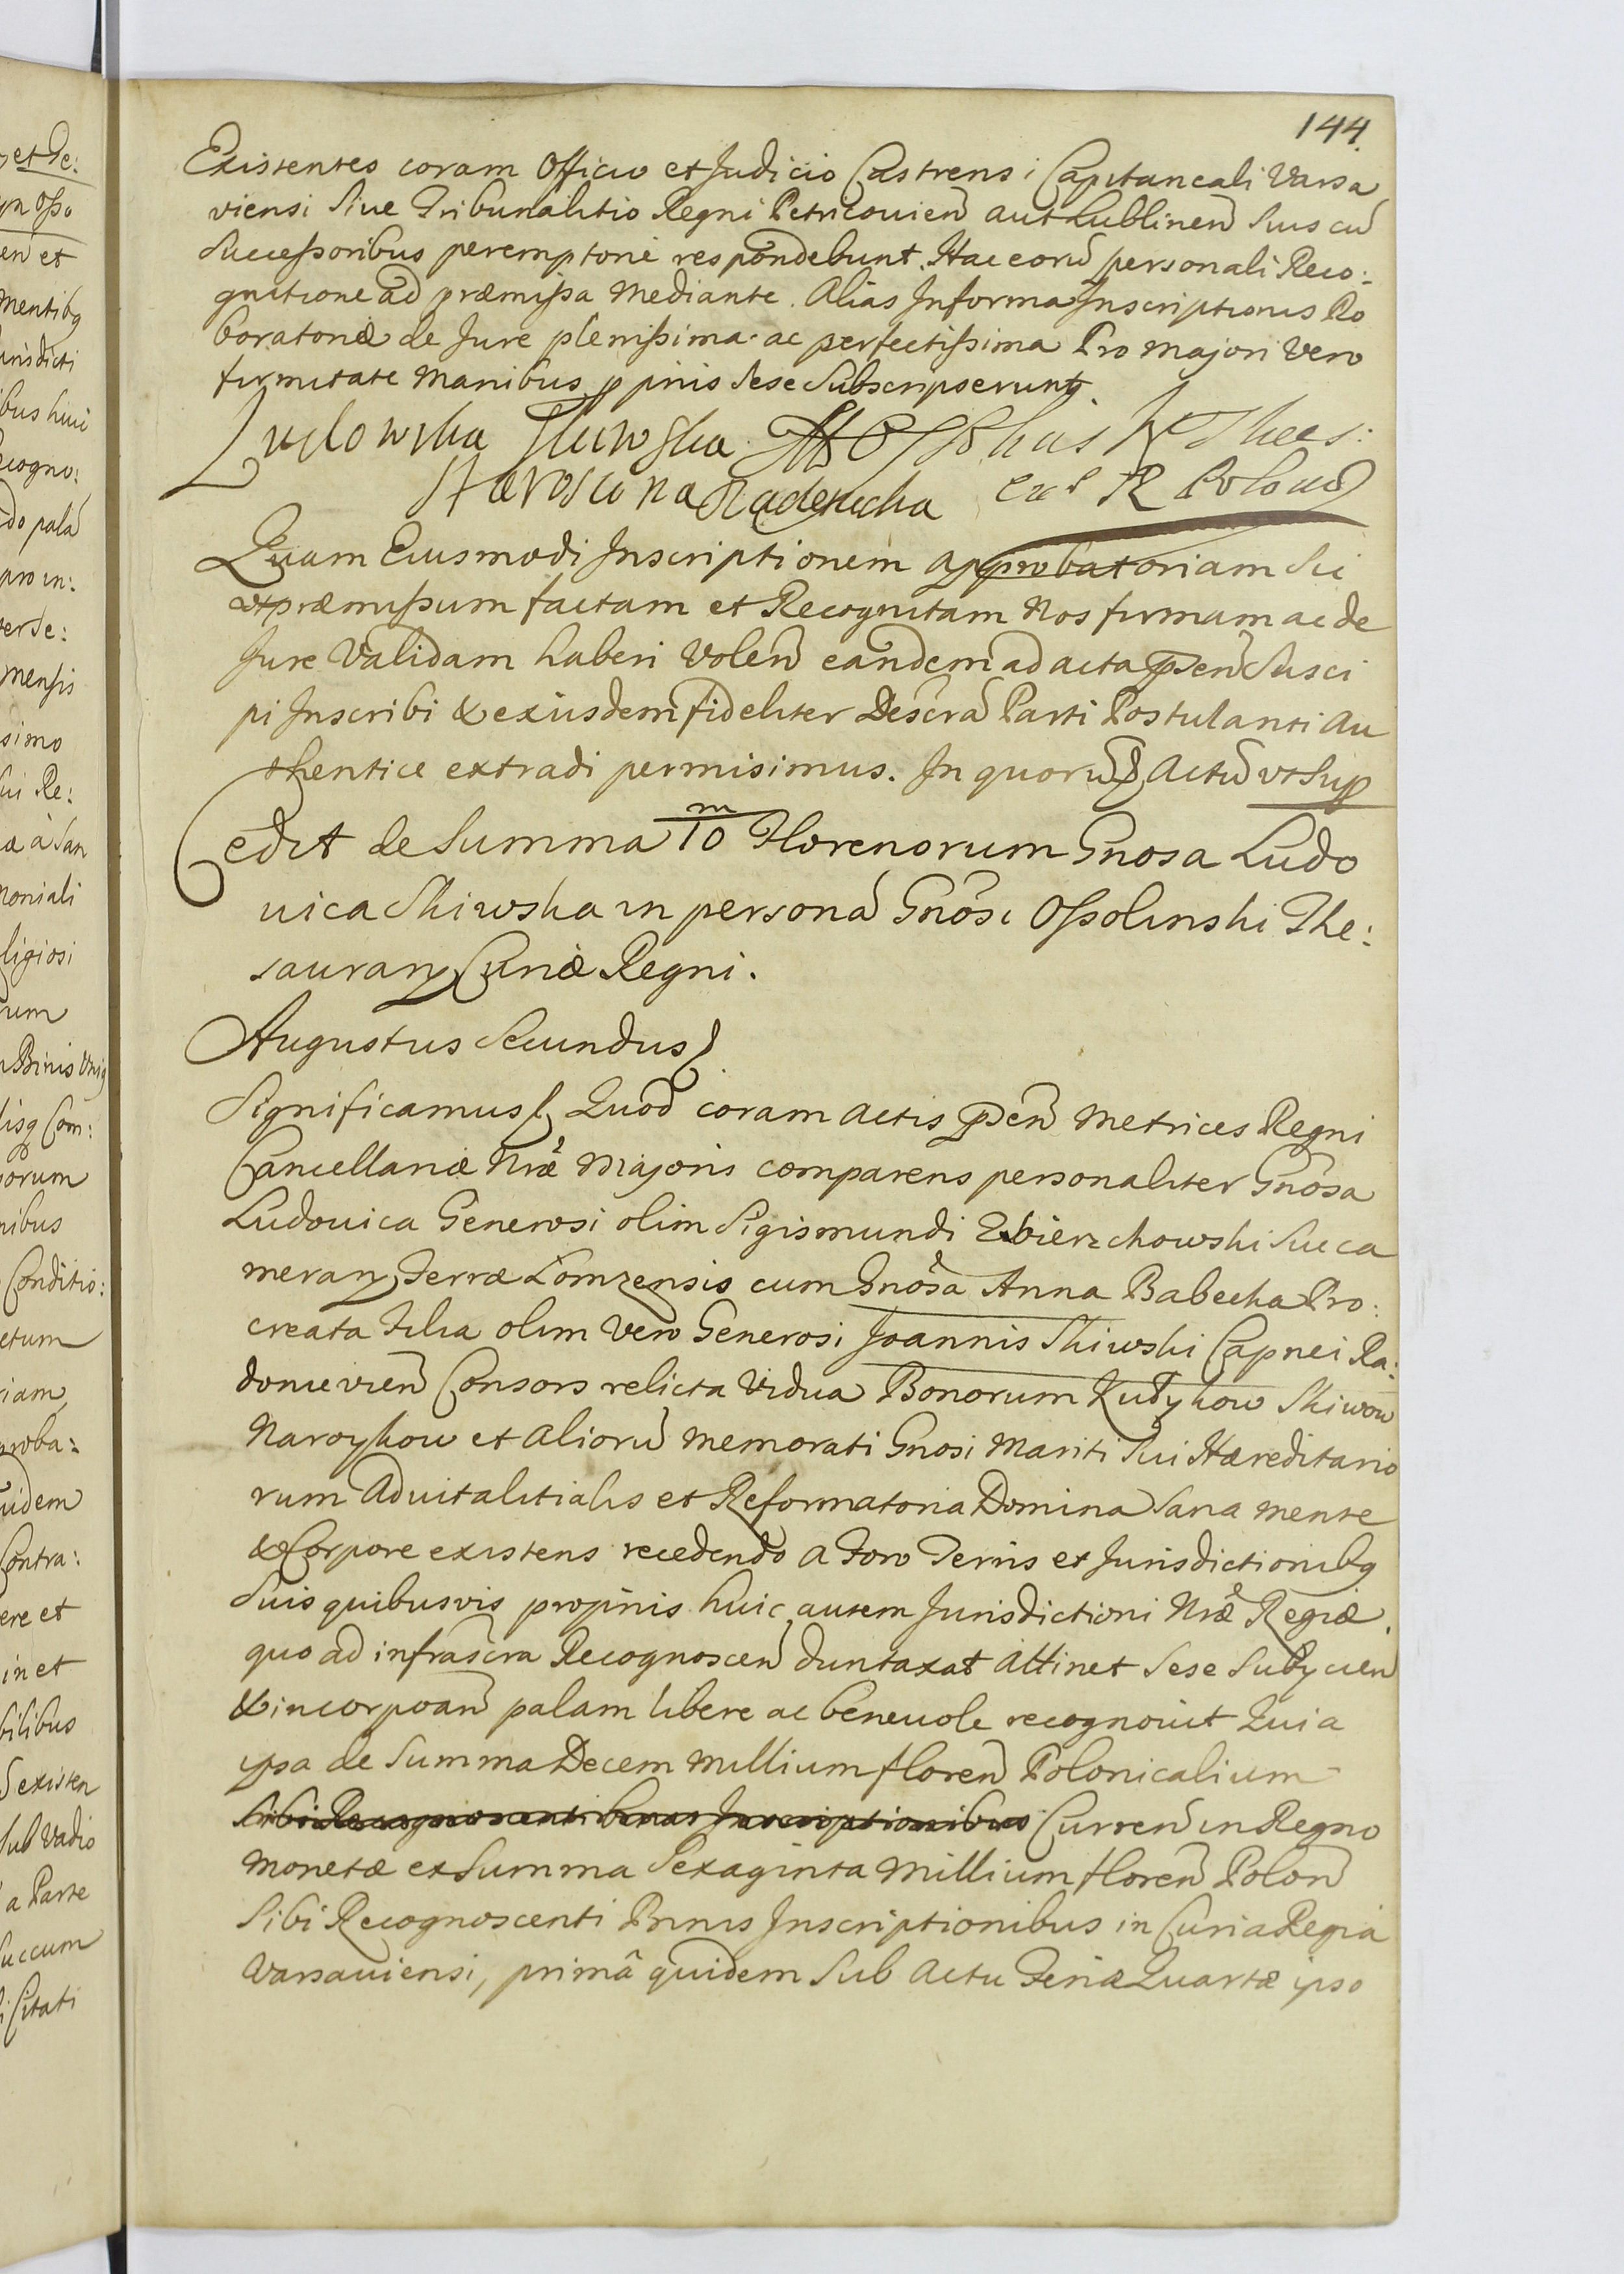 144.
Existentes coram Officio et Judicio Castrensi Capitaneali Varsa
viensi Siue Tribunalitio Regni Petricouien aut Lublinen Suis cu
Successoribus peremptorie respondebunt. Hac eoru personali Reco:
gnitione ad præmissa mediante. Alias In forma Inscriptionis Ro
boratoriæ de Jure plenissima ac perfectissima Pro majori Vero
firmitate manibus pprijs sese Subscripserunt.
Skiwska
Staroscina Radenicka
Quam Eiusmodi Inscriptionem approbatoriam Sic
ut præmissum factam et Recognitam Nos firmam ac de
Jure Validam haberi Volen eandem ad acta psen Susci
pi Inscribi & exiusdem fideliter Descra Parti Postulanti Au
thentice extradi permisimus. In quoru Actu ut Sup
Cedit de Summa 10 m Florenorum Gnosa Ludo
uica Skiwska in persona Gnosi Ossolinski The:
saurarij Curiæ Regni.
Augustus Secundus
Significamus Quod coram actis psen Metrices Regni
Cancellariæ Nræ Majoris comparens personaliter Gnosa
Ludouica Generosi olim Sigismundi Zbierzchowski Succa
merarij Terræ Lomzensis cum Gnosa Anna Babecka Pro:
creata Filia olim Vero Generosi Joannis Skiwski Capnei Ra:
domievien Consors relicta Vidua Bonorum Kutykow Skiwow
Naroykow et alioru memorati Gnosi Mariti Sui Hæreditario
rum Aduitalitialis et Reformatoria Domina Sana mente
& Corpore existens recedendo a Foro Terris et Jurisdictionibq
Suis quibusvis proprijs huic autem Jurisdictioni Nræ Regiæ.
quo ad infrascra Recognoscen duntaxat attinet Sese Subijcien
& incorpoan palam libere ac beneuole recognouit Quia
ipsa de Summa Decem Millium floren Polonicalium
Sibi Recognoscenti binas Inscriptionibus Curren in Regno
monetæ ex Summa Sexaginta Millium floren Polon
Sibi Recognoscenti Binis Inscriptionibus in Curia Regia
Varsauiensi, primâ quidem Sub Actu Feria Quartæ ipso